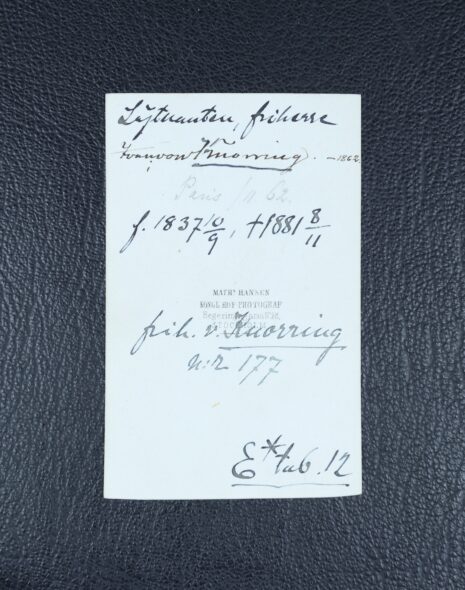 Löjtnanten, friherre
von Knorring. –1862
Paris /11 62.
f. 1837 10/9, †1881 8/11
MATHS HANSEN
KONGL HOF-PHOTOGRAF
STOCKHOLM
frih. v. Knorring
n:r 177
E* tab. 12